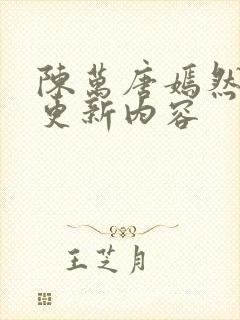 陳萬唐嫣然
更新内容
王芝月